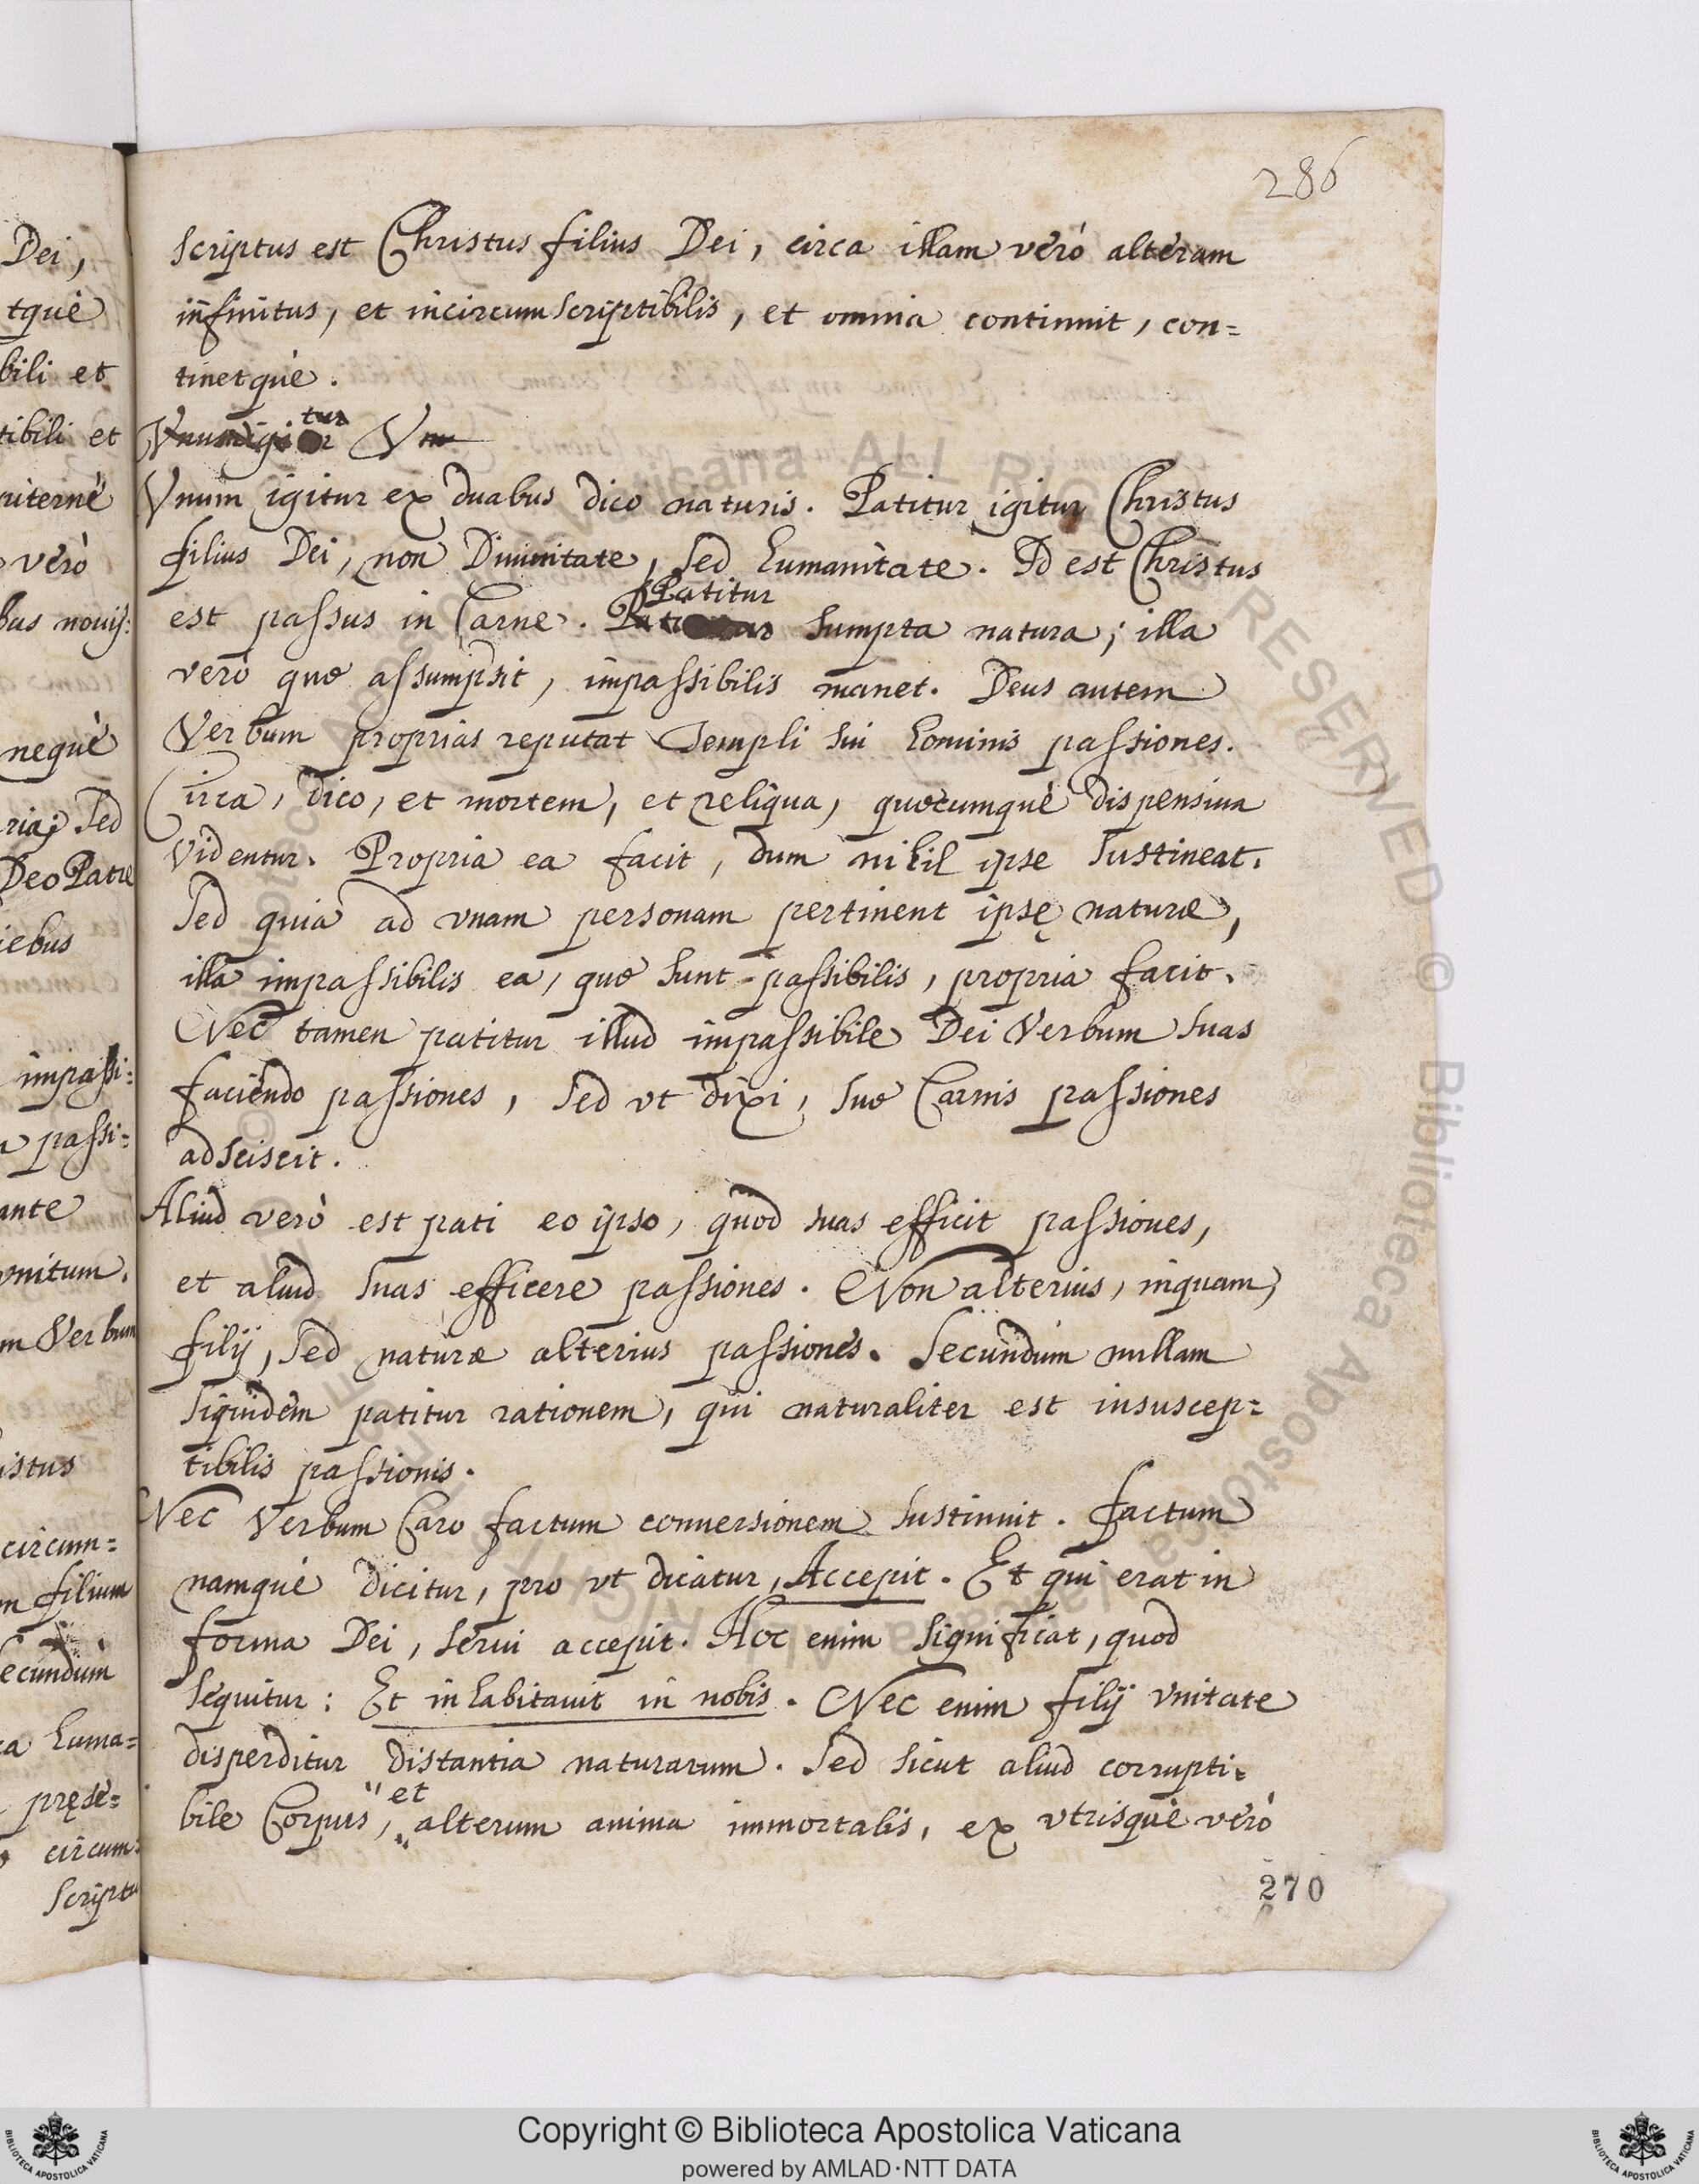 286
scriptus est Christus filius Dei, circa illam verò alteram
infinitus, et incircumscriptibilis, et omnia continuit, con=
tinetquè.
Vnum igitur Vn
Vnum igitur ex duabus dico naturis. Patitur igitur Christus
filius Dei, non Diuinitate, sed humanitate. Id est Christus
est passus in Carne. Patitur sumpta natura; illa
verò quæ assumpsit, impassibilis manet. Deus autem
Verbum proprias reputat Templi sui hominis passiones.
Circa, dico, et mortem, et reliqua, quæcumquè dispensiua
videntur. Propria ea facit, dum nihil ipse sustineat.
Sed quia ad vnam personam pertinent ipsę naturæ,
illa impassibilis ea, quæ sunt passibilis, propria facit.
Nec tamen patitur illud impassibile Dei Verbum suas
faciendo passiones, sed vt dixi, suæ Carnis passiones
adsciscit.
Aliud verò est pati eo ipso, quod suas efficit passiones,
et aliud suas efficere passiones. Non alterius, inquam,
filij, sed naturæ alterius passiones. Secundum nullam
siquidem patitur rationem, qui naturaliter est insuscep=
tibilis passionis.
Nec Verbum Caro factum conuersionem sustinuit. factum
namquè dicitur, pro vt dicatur, Accepit. Et qui erat in
forma Dei, serui accepit. Hoc enim significat, quod
sequitur: Et inhabitauit in nobis. Nec enim filij vnitate
disperditur distantia naturarum. Sed sicut aliud corrupti=
bile Corpus, et alterum anima immortalis, ex vtrisquè verò
270
Dei,
tquè
bili et
tibili et
niternè
verò
bus nouis:
nequè
ria; sed
Deo Patre
iebus
impassi:
passi=
ante
vnitum.
m Verbum
istus
circum=
m filium
secundum
ca huma=
pręse=
circum=
scriptu
Copyright © Biblioteca Apostolica Vaticana
powered by AMLAD·NTT DATA